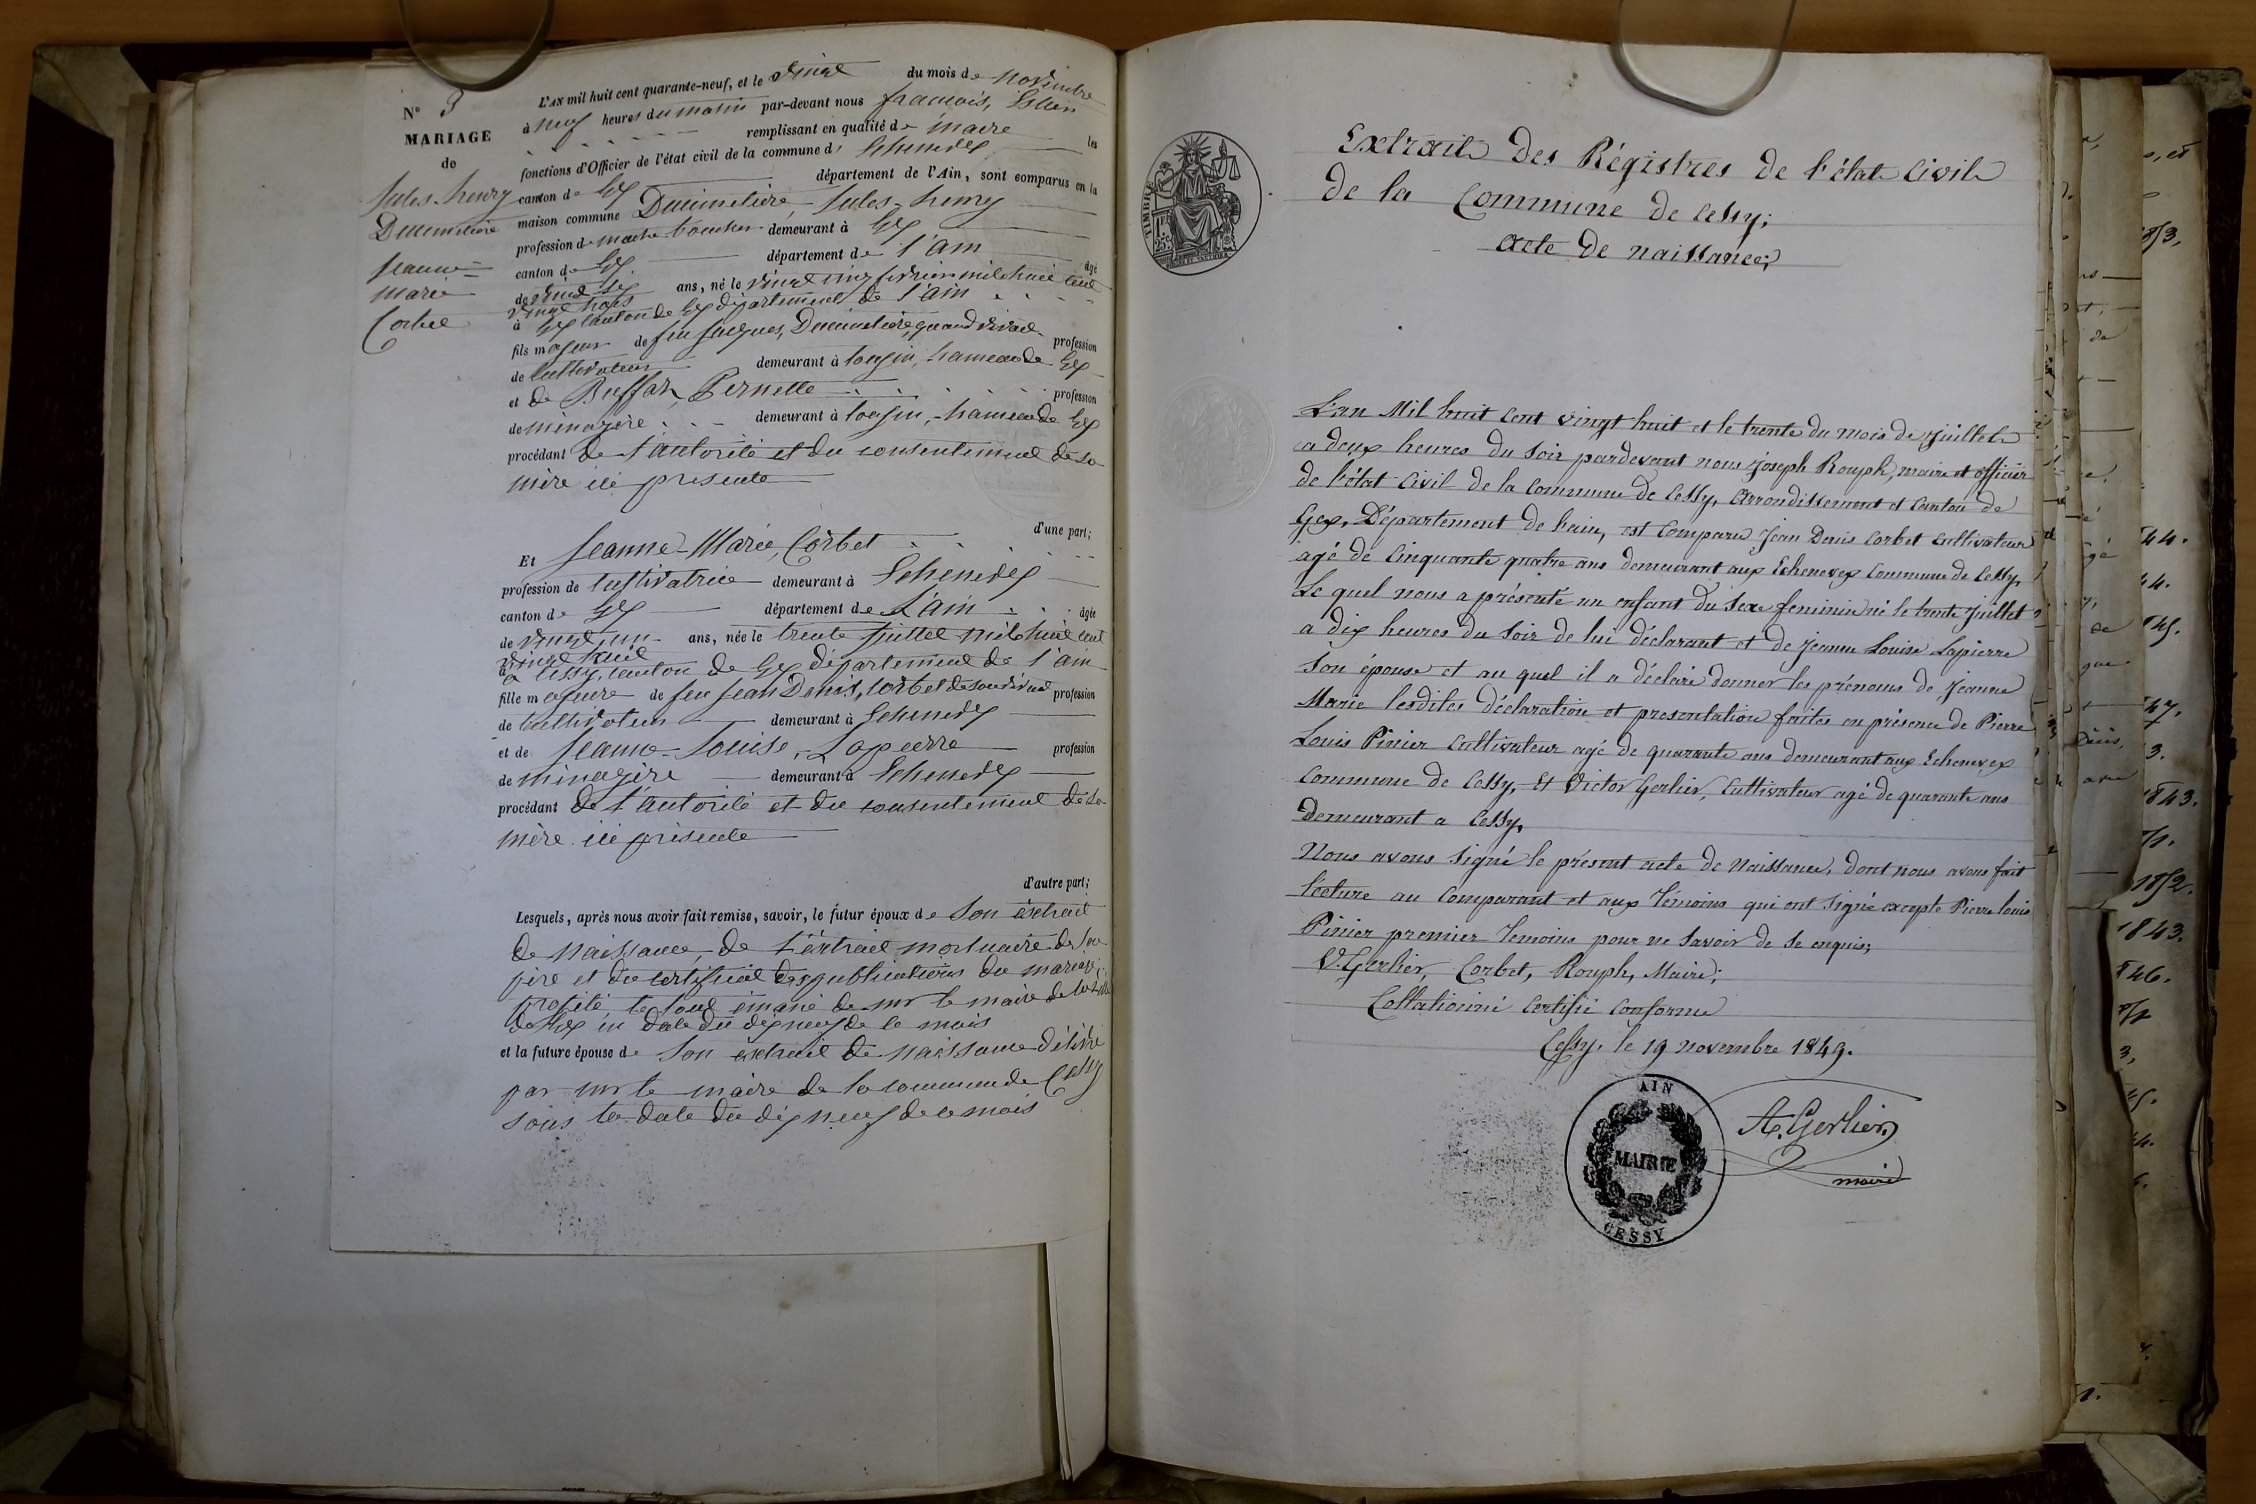 N° 3
MARIAGE
de
Jules-henry
Ducimetière
Jeanne=
Marie
Corbet
L'AN mil huit cent quarante-neuf, et le vingt du mois de novembre
à neuf heures du matin par-devant nous françois,
remplissant en qualité de maire les
fonctions d'Officier de l'état civil de la commune d' Echenevex
canton de Gex département de l'Ain, sont comparus en la
maison commune Ducimetière, Jules-henry
profession de boucher demeurant à Gex
canton de Gex département de l'ain âgé
de vingt six ans, né le vingt cinq fevrier mil huit cent
vingt trois
à Gex canton de Gex département de l'ain
fils majeur de feu Jacques, Ducimetière, quand vivait profession
de cultivateur demeurant à tougin, hameau de Gex
et de Buffaz, Pernette profession
de ménagère demeurant à tougin, hameau de Gex
procédant de l'autorité et du consentement de sa
mère ici présente
d'une part;
Et Jeanne-Marie, Corbet
profession de cultivatrice demeurant à Echenevex
canton de Gex département de L'ain âgée
de vingt un ans, née le trente juillet mil huit cent
vingt huit
à Cessy, canton de Gex département de l'ain
fille majeure de feu Jean Denis, Corbet de son vivant profession
de cultivateur demeurant à Echenevex
et de Jeanne-Louise, Lapierre profession
de ménagère demeurant à Echenevex
procédant de l'autorité et du consentement de sa
mère ici présente
d'autre part;
Lesquels, après nous avoir fait remise, savoir, le futur époux de son extrait
de naissance, de l'extrait mortuaire de son
père et du certificat des publications du mariage
projeté, le tout émané de mr le maire de la ville
de Gex en date du dix neuf de ce mois
et la future épouse de son extrait de naissance délivré
par mr le maire de la commune de Cessy
sous la date du dix neuf de ce mois
TIMBRE
Extrait des Régistres de l'état Civil
de la Commune de Cessy;
acte de naissance;
L'an Mil huit cent vingt huit et le trente du mois de Juillet
a deux heures du soir pardevant nous Joseph Rouph, maire et officier
de l'état Civil de la Commune de Cessy, Arrondissement et Canton de
Gex, Département de l'ain, est comparu Jean Denis Corbet Cultivateur
agé de Cinquante quatre ans demeurant aux Echenevex Commune de Cessy,
Le quel nous a présenté un enfant du sexe feminin né le trente Juillet
a dix heures du soir de lui déclarant et de Jeanne Louise Lapierre
Son épouse et au quel il a déclaré donner les prénoms de Jeanne
Marie lesdites déclaration et presentation faites en présence de Pierre
Louis Pinier Cultivateur agé de quarante ans demeurant aux Echenevex
Commune de Cessy, et Victor Gerlier, Cultivateur agé de quarante ans
Demeurant a Cessy,
Nous avons signé le présent acte de Naissance, dont nous avons fait
lecture au Comparant et aux Témoins qui ont signé excepté Pierre louis
Pinier premier Temoins pour ne savoir de ce enquis;
V. Gerlier, Corbet, Rouph, Maire;
Collationné Certifié Conforme
Cessy, le 19 novembre 1849.
A. Gerlier
maire
AIN
MAIRIE
CESSY